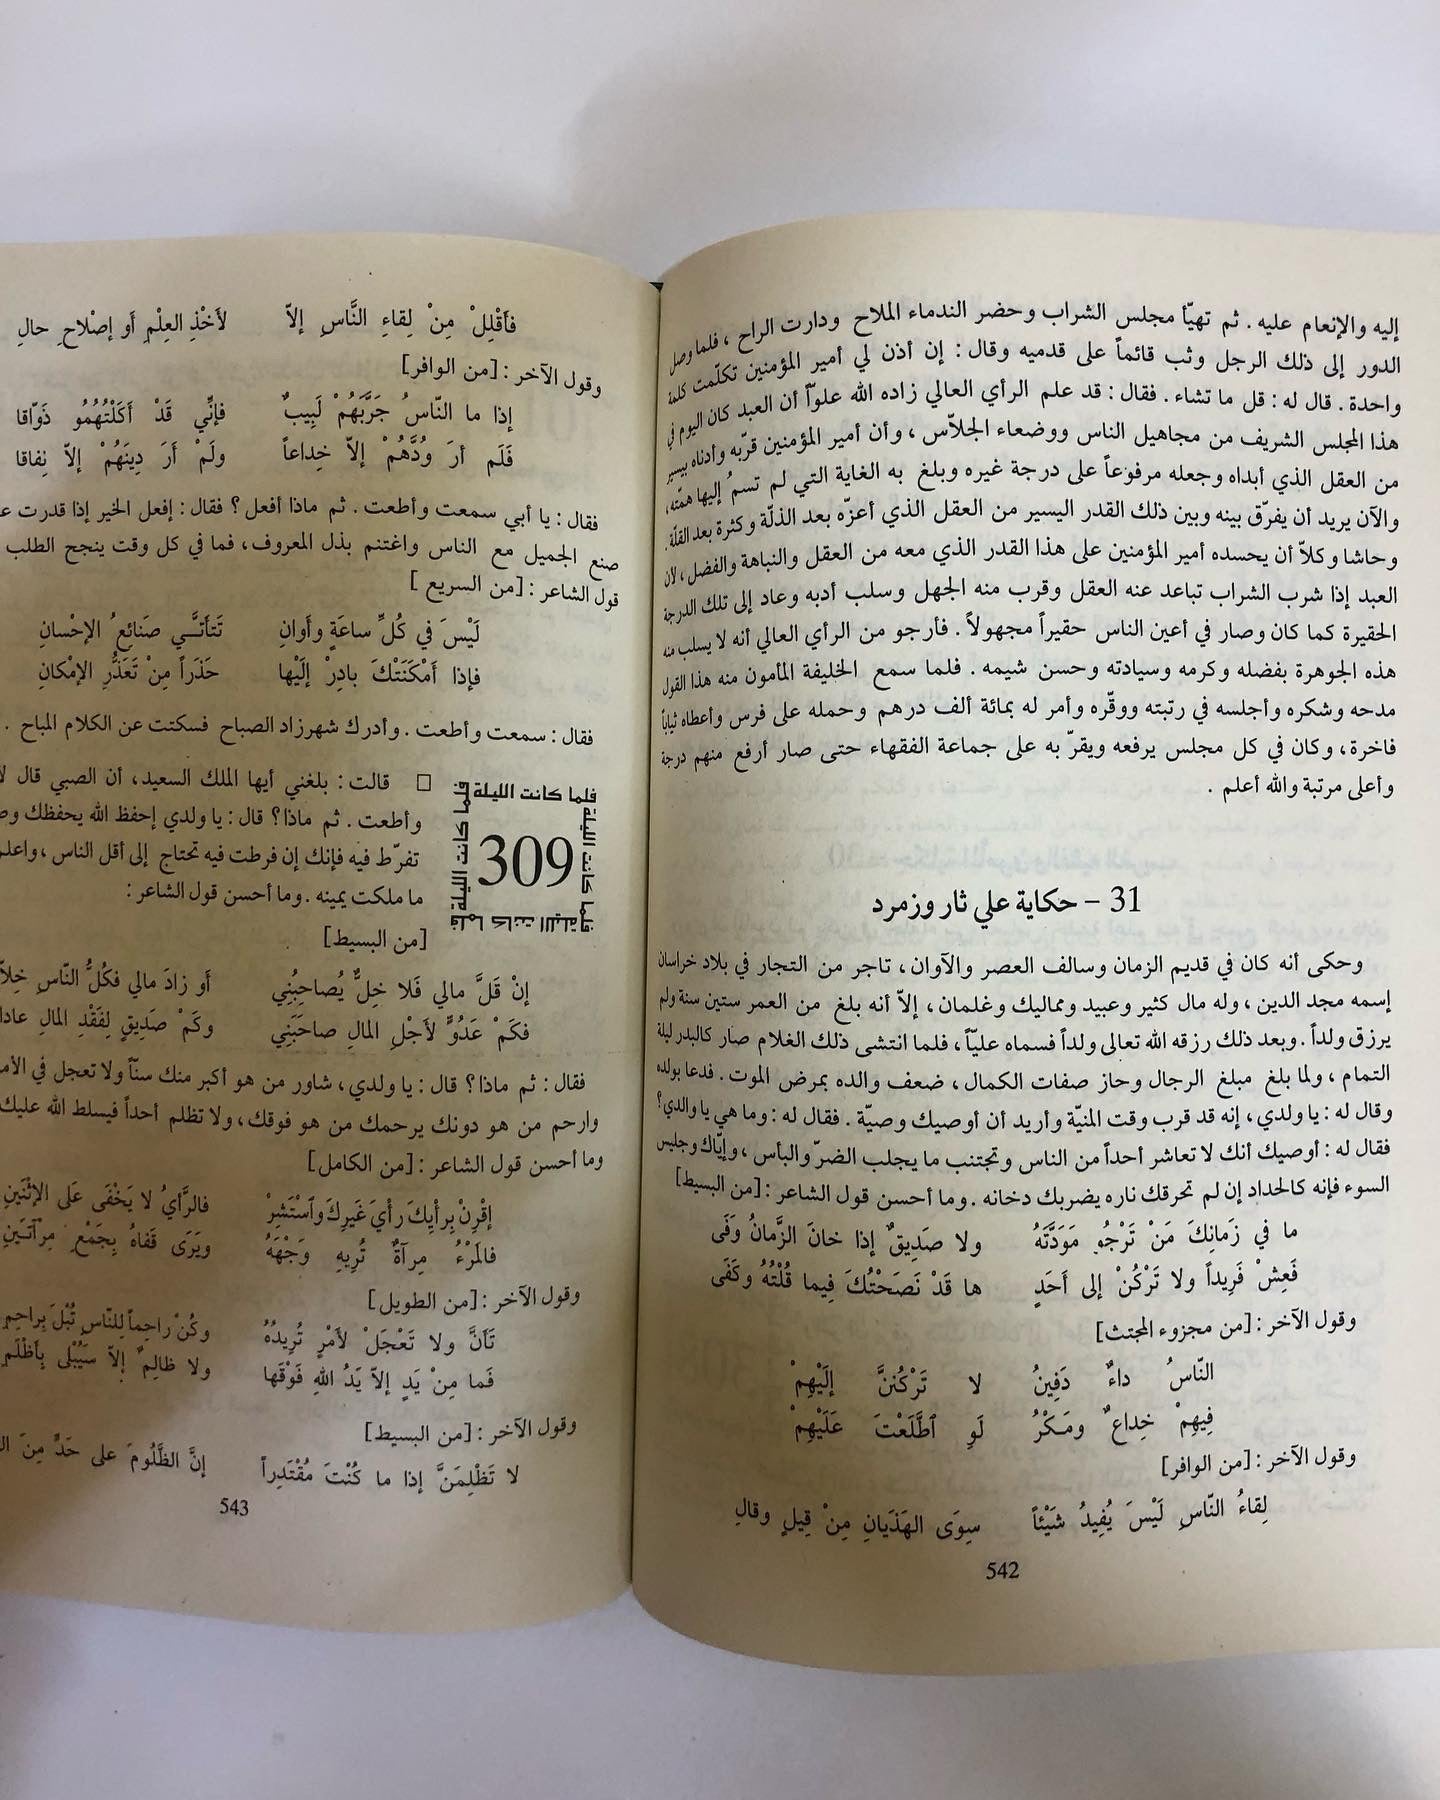 إليه والإنعام عليه. ثم تهيّأ مجلس الشراب وحضر الندماء الملاح ودارت الراح، فلما وصل
الدور إلى ذلك الرجل وثب قائماً على قدميه وقال: إن أذن لي أمير المؤمنين تكلّمت كلمة
واحدة. قال له: قل ما تشاء. فقال: قد علم الرأي العالي زاده الله علوّاً أن العبد كان اليوم في
هذا المجلس الشريف من مجاهيل الناس ووضعاء الجلاّس، وأن أمير المؤمنين قرّبه وأدناه بيسير
من العقل الذي أبداه وجعله مرفوعاً على درجة غيره وبلغ به الغاية التي لم تسمُ إليها همّته،
والآن يريد أن يفرّق بينه وبين ذلك القدر اليسير من العقل الذي أعزّه بعد الذلّة وكثرة بعد القلّة.
وحاشا وكلاّ أن يحسده أمير المؤمنين على هذا القدر الذي معه من العقل والنباهة والفضل، لأن
العبد إذا شرب الشراب تباعد عنه العقل وقرب منه الجهل وسلب أدبه وعاد إلى تلك الدرجة
الحقيرة كما كان وصار في أعين الناس حقيراً مجهولاً. فأرجو من الرأي العالي أنه لا يسلب منه
هذه الجوهرة بفضله وكرمه وسيادته وحسن شيمه. فلما سمع الخليفة المأمون منه هذا القول
مدحه وشكره وأجلسه في رتبته ووقّره وأمر له بمائة ألف درهم وحمله على فرس وأعطاه ثياباً
فاخرة، وكان في كل مجلس يرفعه ويقرّ به على جماعة الفقهاء حتى صار أرفع منهم درجة
وأعلى مرتبة والله أعلم.
31 - حكاية علي ثار وزمرد
وحكى أنه كان في قديم الزمان وسالف العصر والآوان، تاجر من التجار في بلاد خراسان
إسمه مجد الدين، وله مال كثير وعبيد ومماليك وغلمان، إلاّ أنه بلغ من العمر ستين سنة ولم
يرزق ولداً. وبعد ذلك رزقه الله تعالى ولداً فسماه عليّاً، فلما انتشى ذلك الغلام صار كالبدر ليلة
التمام، ولما بلغ مبلغ الرجال وحاز صفات الكمال، ضعف والده بمرض الموت. فدعا بولده
وقال له: يا ولدي، إنه قد قرب وقت المنيّة وأريد أن أوصيك وصيّة. فقال له: وما هي يا والدي؟
فقال له: أوصيك أنك لا تعاشر أحداً من الناس وتجتنب ما يجلب الضرّ والبأس، وإيّاك وجليس
السوء فإنه كالحداد إن لم تحرقك ناره يضربك دخانه. وما أحسن قول الشاعر: [من البسيط]
ما في زَمَانِكَ مَنْ تَرْجُو مَوَدَّتَهُ ولا صَدِيقٌ إذا خانَ الزَّمانُ وَفَى
فَعِشْ فَرِيداً ولا تَرْكَنْ إلى أَحَدٍ ها قَدْ نَصَحْتُكَ فِيما قُلْتُهُ وكَفَى
وقول الآخر: [من مجزوء المجتث]
النّاسُ داءٌ دَفِينُ لا تَرْكُننَّ إلَيْهِمْ
فِيهِمْ خِداعٌ ومَكْرُ لَوِ ٱطَّلَعْتَ عَلَيْهِمْ
وقول الآخر: [من الوافر]
لِقاءُ النّاسِ لَيْسَ يُفِيدُ شَيْئاً سِوَى الهَذَيانِ مِنْ قِيلٍ وقالِ
542
فأَقْلِلْ مِنْ لِقاءِ النَّاسِ إلاّ لأَخْذِ العِلْمِ أو إصْلاحِ حالِ
وقول الآخر: [من الوافر]
إذا ما النّاسُ جَرَّبَهُمْ لَبِيبٌ فإنِّي قَدْ أَكَلْتُهُمُو ذَوّاقا
فَلَم أرَ وُدَّهُمْ إلاّ خِداعاً ولَمْ أرَ دِينَهُمْ إلاّ نِفاقا
فقال: يا أبي سمعت وأطعت. ثم ماذا أفعل؟ فقال: إفعل الخير إذا قدرت
صنع الجميل مع الناس واغتنم بذل المعروف، فما في كل وقت ينجح الطلب
قول الشاعر: [من السريع]
لَيْسَ في كُلِّ ساعَةٍ وأوانِ تَتَأتَّى صَنائِعُ الإحْسانِ
فإذا أَمْكَنَتْكَ بادِرْ إلَيْها حَذَراً مِنْ تَعَذُّرِ الإمْكانِ
فقال: سمعت وأطعت. وأدرك شهرزاد الصباح فسكتت عن الكلام المباح.
فلما كانت الليلة
فلما كانت الليلة
309
فلما كانت الليلة
فلما كانت الليلة
□ قالت: بلغني أيها الملك السعيد، أن الصبي قال
وأطعت. ثم ماذا؟ قال: يا ولدي إحفظ الله يحفظك
تفرّط فيه فإنك إن فرطت فيه تحتاج إلى أقل الناس، واعلم
ما ملكت يمينه. وما أحسن قول الشاعر:
[من البسيط]
إنْ قَلَّ مالي فَلا خِلٌّ يُصاحِبُنِي أو زادَ مالي فكُلُّ النّاسِ
فكَمْ عَدُوٍّ لأَجْلِ المَالِ صاحَبَنِي وكَمْ صَدِيقٍ لِفَقْدِ المَالِ
فقال: ثم ماذا؟ قال: يا ولدي، شاور من هو أكبر منك سنّاً ولا تعجل في
وارحم من هو دونك يرحمك من هو فوقك، ولا تظلم أحداً فيسلط الله عليك
وما أحسن قول الشاعر: [من الكامل]
إقْرِنْ بِرأيِكَ رأيَ غَيرِكَ وٱسْتَشِرْ فالرَّأيُ لا يَخْفَى عَلَى الإثْنَينِ
فالمَرْءُ مِرآةٌ تُرِيهِ وَجْهَهُ ويَرَى قَفاهُ بِجَمْعِ مِرْآتَينِ
وقول الآخر: [من الطويل]
تَأنَّ ولا تَعْجَلْ لأَمْرٍ تُرِيدُهُ وكُنْ راحِماً للنّاسِ تُبْلَ بِراحِمِ
فَما مِنْ يَدٍ إلاّ يَدُ اللهِ فَوْقَها ولا ظالِمٍ إلاّ سَيُبْلى بِأَظْلَمِ
وقول الآخر: [من البسيط]
لا تَظْلِمَنَّ إذا ما كُنْتَ مُقْتَدِراً إنَّ الظَّلُومَ على حَدٍّ مِنَ
543